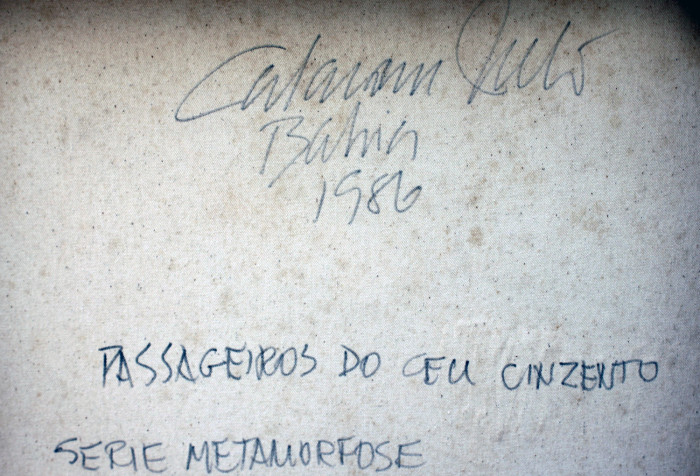 Bahia
1986
PASSAGEIROS DO CEU CINZENTO
SERIE METAMORFOSE